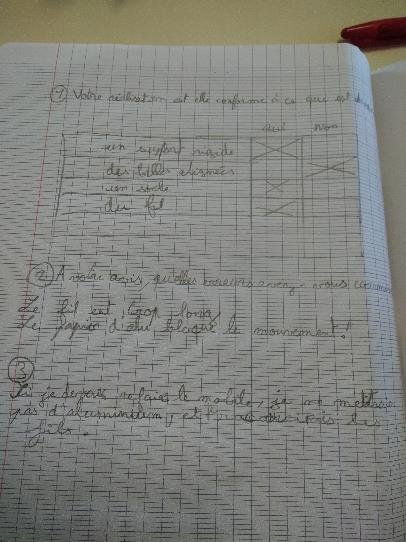 ① Votre réalisation est elle conforme à ce que est
oui Non
un support rigide
des billes
un socle
du fil
② A votre avis, quelles erreurs avez-vous
Le fil est trop long
Le papier d'alu bloque le mouvement!
③
Si je devais refaire le mobile, je ne mettrais
pas d'aluminium, et les
fils.